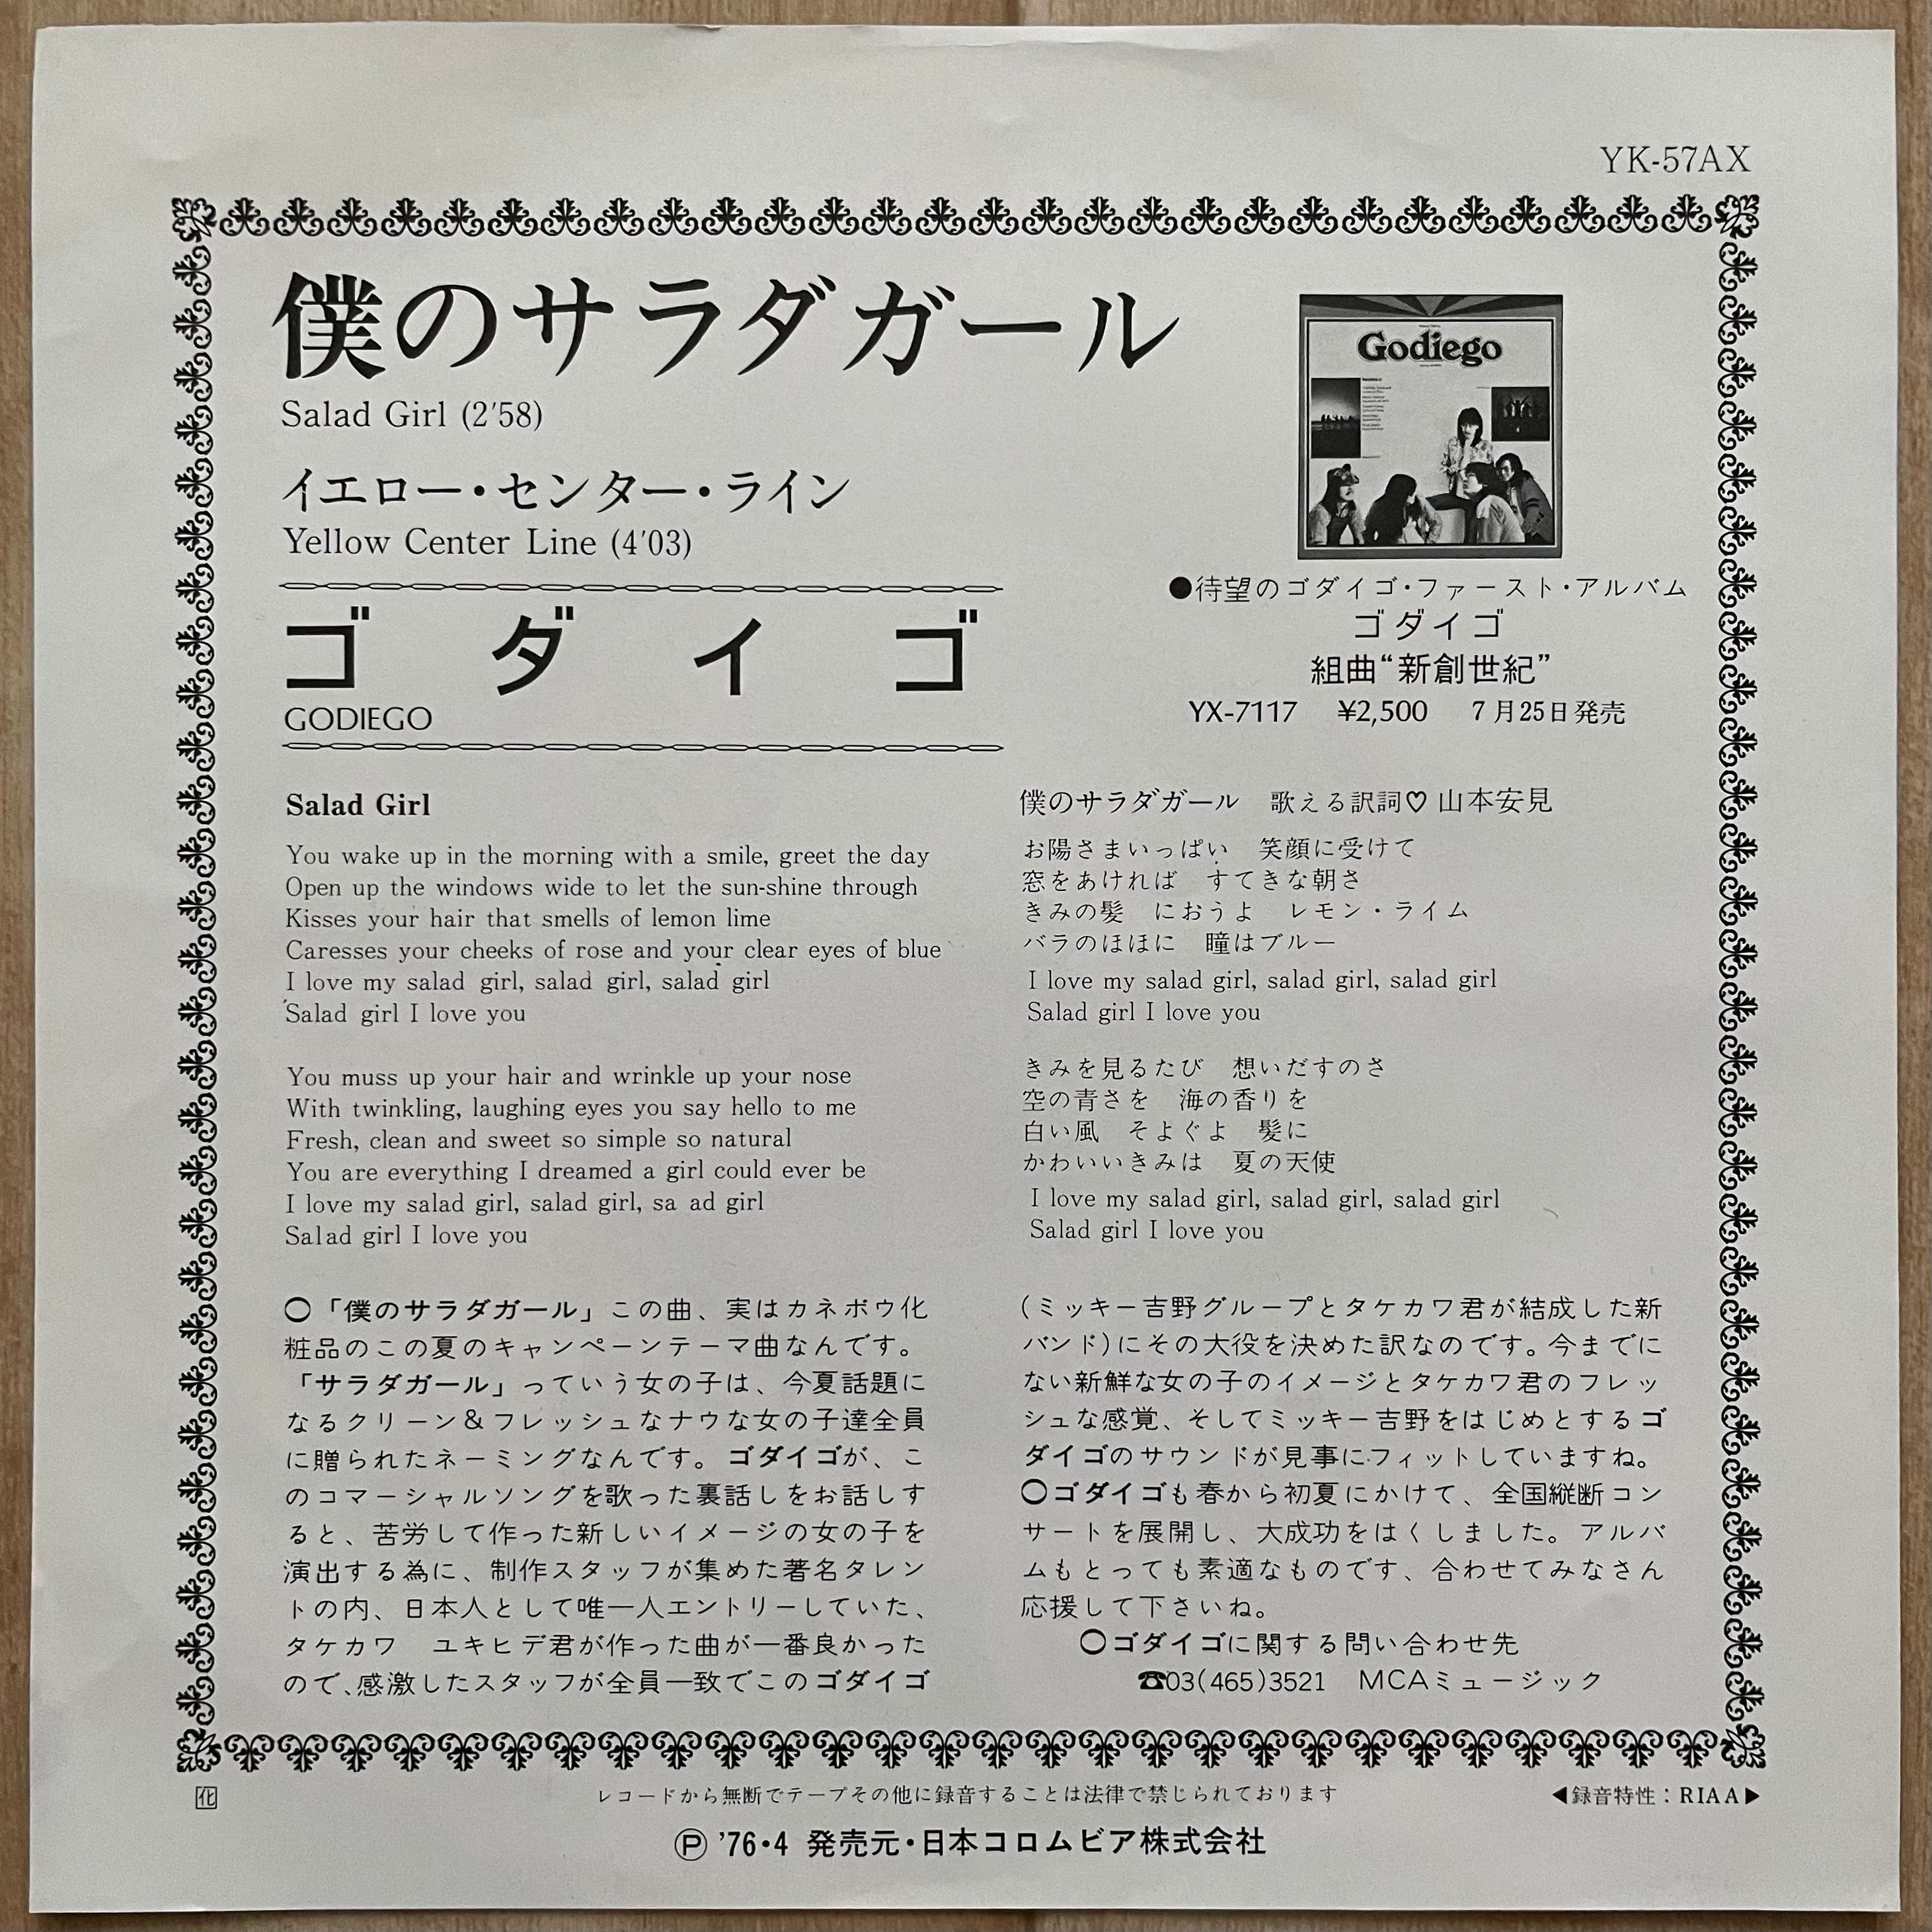 YK-57AX
僕のサラダガール
Salad Girl (2′58)
イエロー・センター・ライン
Yellow Center Line (4′03)
ゴダイゴ
GODIEGO
Godiego
●待望のゴダイゴ・ファースト・アルバム
ゴダイゴ
組曲“新創世紀”
YX-7117 ¥2,500 7月25日発売
Salad Girl
You wake up in the morning with a smile, greet the day
Open up the windows wide to let the sun-shine through
Kisses your hair that smells of lemon lime
Caresses your cheeks of rose and your clear eyes of blue
I love my salad girl, salad girl, salad girl
Salad girl I love you
You muss up your hair and wrinkle up your nose
With twinkling, laughing eyes you say hello to me
Fresh, clean and sweet so simple so natural
You are everything I dreamed a girl could ever be
I love my salad girl, salad girl, sa ad girl
Salad girl I love you
僕のサラダガール 歌える訳詞♡山本安見
お陽さまいっぱい 笑顔に受けて
窓をあければ すてきな朝さ
きみの髪 におうよ レモン・ライム
バラのほほに 瞳はブルー
I love my salad girl, salad girl, salad girl
Salad girl I love you
きみを見るたび 想いだすのさ
空の青さを 海の香りを
白い風 そよぐよ 髪に
かわいいきみは 夏の天使
I love my salad girl, salad girl, salad girl
Salad girl I love you
○「僕のサラダガール」この曲、実はカネボウ化
粧品のこの夏のキャンペーンテーマ曲なんです。
「サラダガール」っていう女の子は、今夏話題に
なるクリーン&フレッシュなナウな女の子達全員
に贈られたネーミングなんです。ゴダイゴが、こ
のコマーシャルソングを歌った裏話しをお話しす
ると、苦労して作った新しいイメージの女の子を
演出する為に、制作スタッフが集めた著名タレン
トの内、日本人として唯一人エントリーしていた、
タケカワ ユキヒデ君が作った曲が一番良かった
ので、感激したスタッフが全員一致でこのゴダイゴ
(ミッキー吉野グループとタケカワ君が結成した新
バンド)にその大役を決めた訳なのです。今までに
ない新鮮な女の子のイメージとタケカワ君のフレッ
シュな感覚、そしてミッキー吉野をはじめとするゴ
ダイゴのサウンドが見事にフィットしていますね。
○ゴダイゴも春から初夏にかけて、全国縦断コン
サートを展開し、大成功をはくしました。アルバ
ムもとっても素適なものです、合わせてみなさん
応援して下さいね。
○ゴダイゴに関する問い合わせ先
☎03(465)3521 MCAミュージック
化
レコードから無断でテープその他に録音することは法律で禁じられております
◀録音特性：RIAA▶
Ⓟ ’76・4 発売元・日本コロムビア株式会社